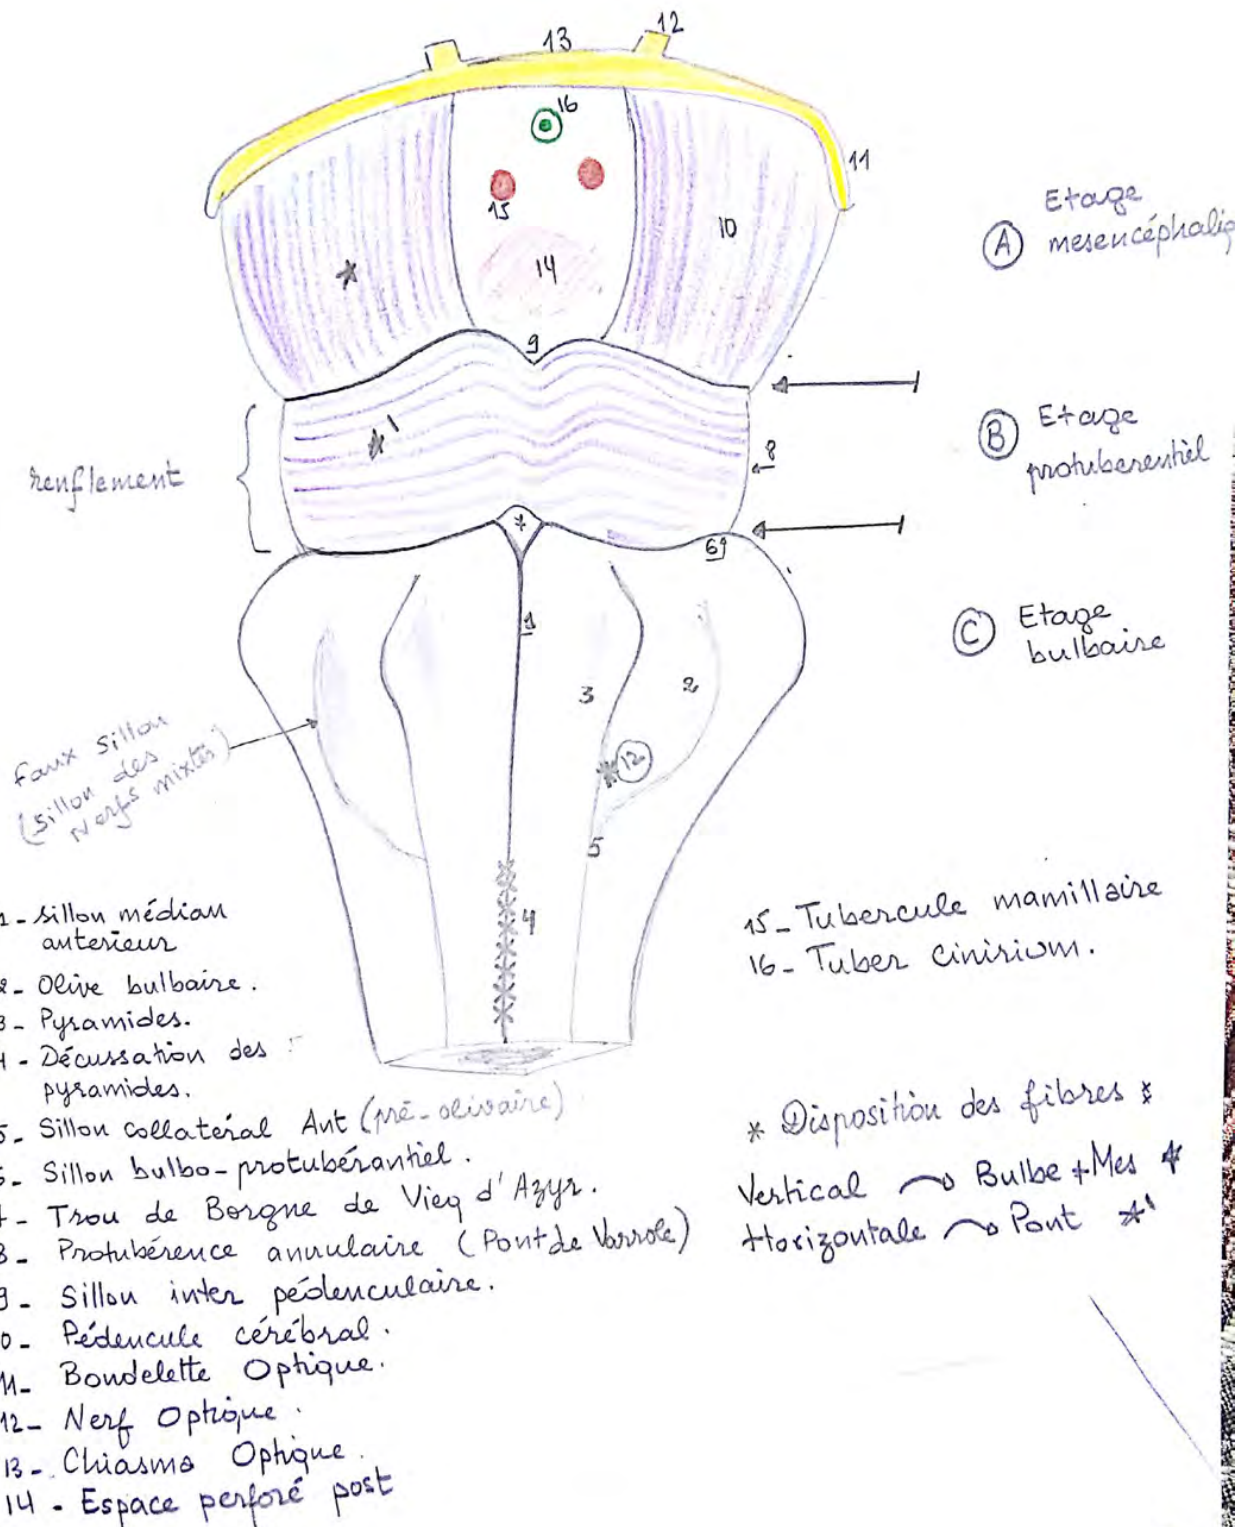 12
13
16
11
15
10
14
9
Etage
A mesencéphaliq
*
*'
8
B Etage
protuberentièl
renflement
*
6
C Etage
bulbaire
1
3
2
faux sillon
(sillon des
Nerfs mixtes)
* 12
5
4
1- sillon médian
anterieur
2- Olive bulbaire.
3- Pyramides.
4- Décussation des
pyramides.
5- Sillon collatéral Ant (pré-olivaire)
6- Sillon bulbo-protubérantiel.
7- Trou de Borgne de Vicq d'Azyr.
8- Protubérence annulaire (Pont de Varrole)
9- Sillon inter pédenculaire.
10- Pédencule cérébral.
11- Bondelette Optique.
12- Nerf Optique.
13- Chiasma Optique.
14- Espace perforé post
15- Tubercule mamillaire
16- Tuber cinirium.
* Disposition des fibres :
Vertical → Bulbe + Mes *
Horizontale → Pont *'